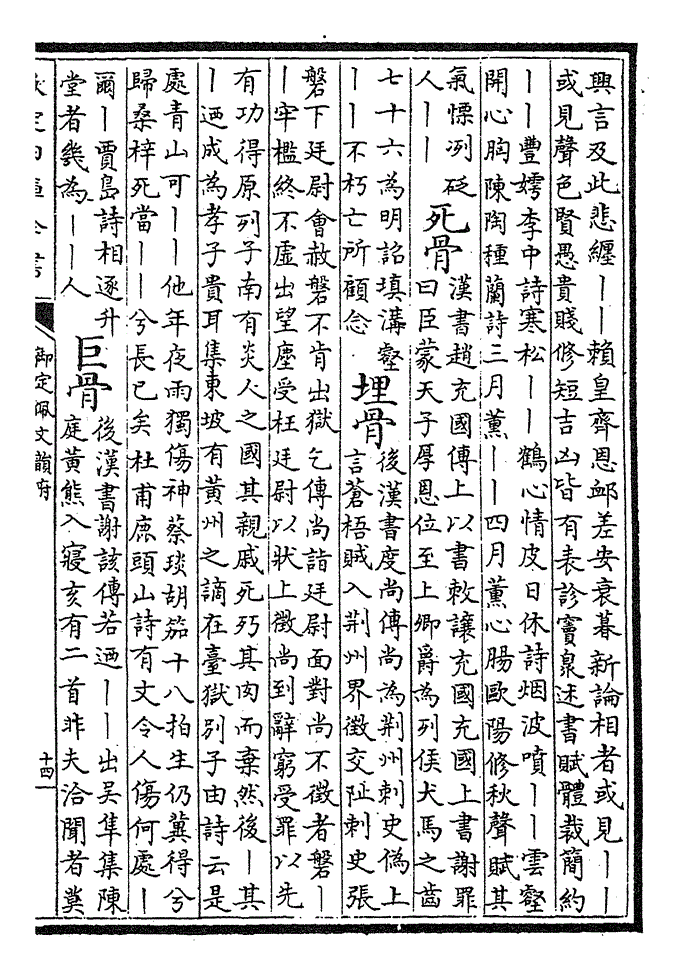 興言及此悲纏丨丨賴皇齊恩䘏差安衰暮新論相者或見丨丨
或見聲色賢愚貴賤修短吉凶皆有表診竇臮述書賦體裁簡約
丨丨豐嫮李中詩寒松丨丨鶴心情皮日休詩烟波噴丨丨雲壑
開心胸陳陶種蘭詩三月薰丨丨四月薰心腸歐陽修秋聲賦其
氣慄冽砭
人丨丨
死骨
漢書趙充國傳上以書敕讓充國充國上書謝罪
曰臣蒙天子厚恩位至上卿爵為列侯犬馬之齒
七十六為明詔填溝壑
丨丨不朽亡所顧念
埋骨
後漢書度尚傳尚為荆州刺史偽上
言蒼梧賊入荆州界徵交阯刺史張
磐下廷尉會赦磐不肯出獄乞傳尚詣廷尉面對尚不徵者磐丨
丨牢檻終不虛出望塵受枉廷尉以狀上徵尚到辭窮受罪以先
有功得原列子南有炎人之國其親戚死㱙其肉而棄然後丨其
丨迺成為孝子貴耳集東坡有黃州之謫在臺獄别子由詩云是
處青山可丨丨他年夜雨獨傷神蔡琰胡笳十八拍生仍冀得兮
歸桑梓死當丨丨兮長已矣杜甫鹿頭山詩有文令人傷何處丨
爾丨賈島詩相逐升
堂者幾為丨丨人
巨骨
後漢書謝該傳若迺丨丨出吴隼集陳
庭黄熊入寢亥有二首非夫洽聞者莫
欽定四庫全書
御定佩文韻府
十四